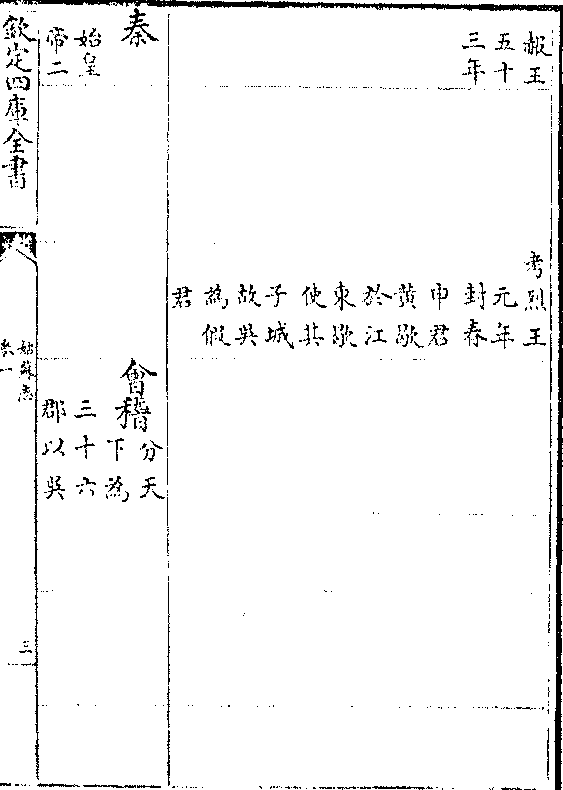 赧王
五十
三年
考烈王
元年
封春
申君
黄歇
於江
東歇
使其
子城
故吳
為假
君
秦
始皇
帝二
會稽
分天
下為
三十六
郡以吳
欽定四庫全書
姑蘇志
卷一
三